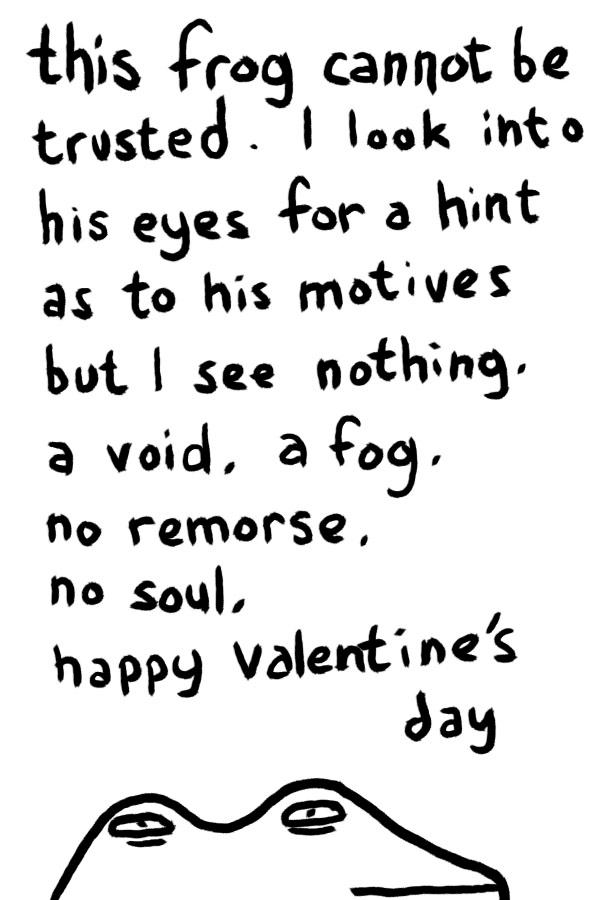 this frog cannot be
trusted. I look into
his eyes for a hint
as to his motives
but I see nothing.
a void. a fog.
no remorse.
no soul.
happy valentine's
day